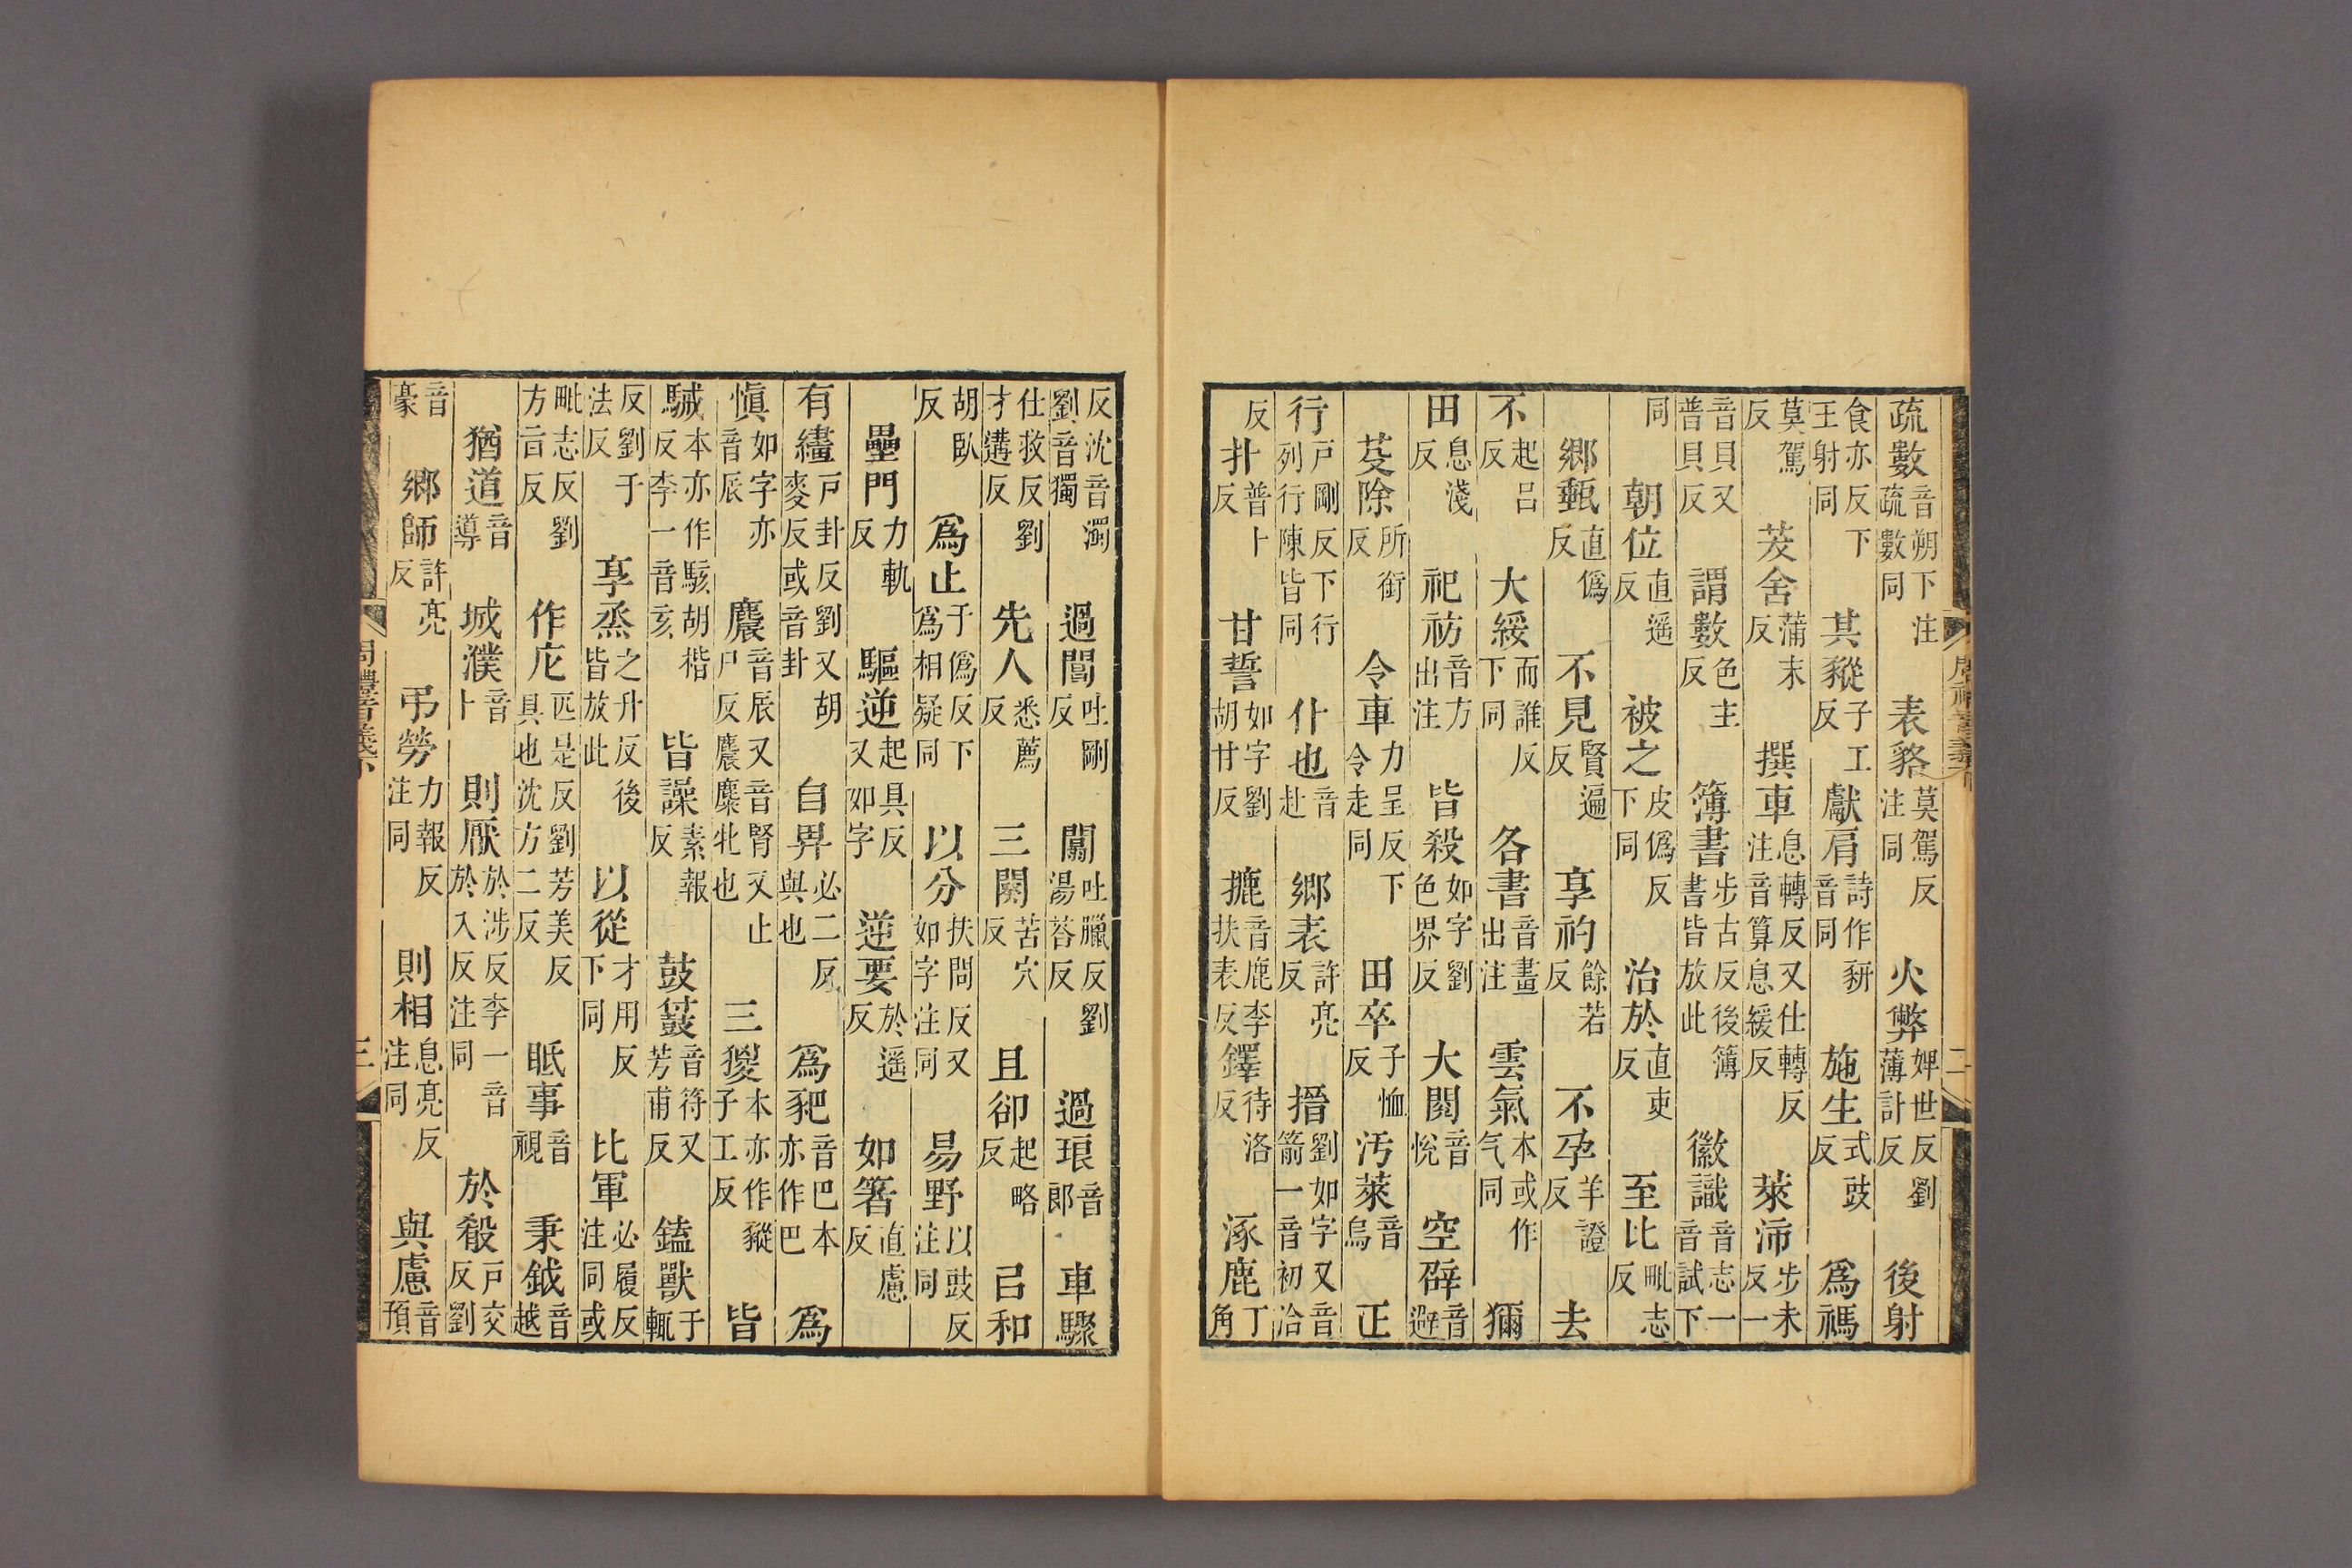 疏數音朔下注疏數同 表貉莫駕反注同 火弊婢世反劉薄計反 後射
食亦反下王射同 其豵子工反 獻肩詩作豜音同 施生式豉反 爲禡
莫駕反 茇舍蒲末反 撰車息轉反又仕轉反注音算息緩反 萊沛步未反一
音貝又普貝反 謂數色主反 簿書步古反後簿書皆放此 徽識音志一音試下
同 朝位直遥反 被之皮僞反下同 治於直吏反 至比毗志反
鄉甄直僞反 不見賢遍反 享礿餘若反 不孕羊證反 去
不起呂反 大綏而誰反下同 各書音畫出注 雲氣本或作气同 獮
田息淺反 祀祊音方出注 皆殺如字劉色界反 大閱音悅 空辟音避
芟除所銜反 令車力呈反下令走同 田卒子恤反 汚萊音烏 正
行戶剛反下行列行陳皆同 仆也音赴 鄉表許亮反 搢劉如字又音箭一音初洽
反 扑普卜反 甘誓如字劉胡甘反 摝音鹿李扶表反 鐸待洛反 涿鹿丁角
反沈音濁劉音獨 過閶吐剛反 闒吐臘反劉湯荅反 過琅音郎 車驟
仕救反劉才遘反 先人悉薦反 三闋苦穴反 且卻起略反 已和
胡臥反 爲止于僞反下爲相疑同 以分扶問反又如字注同 易野以豉反注同
壘門力軌反 驅逆起具反又如字 逆要於遥反 如箸直慮反
有繣戶卦反劉麥反或音卦又胡 自畀必二反與也 爲豝音巴本亦作巴 爲
慎如字亦音辰 麎音辰又音腎又止尸反麎麋牝也 三豵本亦作豵子工反 皆
駴本亦作駭胡楷反李一音亥 皆譟素報反 鼓鼛音符又芳甫反 鎑獸于輒
反劉于法反 享烝之升反後皆放此 以從才用反下同 比軍必履反注同或
毗志反劉方旨反 作庀匹是反劉芳美反具也沈方二反 眡事音視 秉鉞音越
猶道音導 城濮音卜 則厭於涉反李一音於入反注同 於殽戶交反劉
音豪 鄉師許亮反 弔勞力報反注同 則相息亮反注同 與慮音預
周禮音義下 二
周禮音義下 三